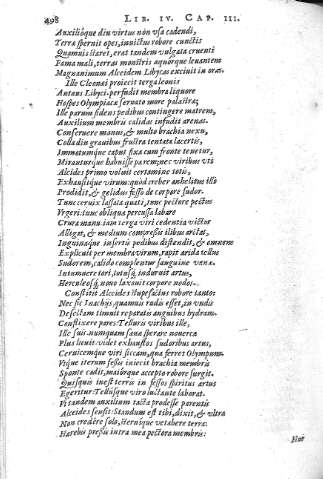 498 LIB. IV. CAP. III.
Auxilióque diu virtus non vsa cadendi,
Terra spernit opes, inuictus robore cunctis
Quamuis staret, erat tandem vulgata cruenti
Fama mali, terras monstris aquorque leuantem
Magnanimum Alcidem Libycas exciuit in oras.
Ille Cleonai proiecit terga leonis
Antæus Libyci: perfudit membra liquore
Hospes Olympiaca seruato more palæstra;
Ille parum fidens pedibus contingere matrem,
Auxilium membris calidas infudit arenas.
Conseruere manus, & multo brachia nexu,
Colla diu grauibus frustra tentata lacertis,
Immotumque caput fixa cum fronte tenetur,
Miranturque habuisse parem: nec viribus vti
Alcides primo voluit certamine totis,
Exhausitque virum: quod creber anhelitus illi
Prodidit, & gelidus fesso de corpore sudor.
Tunc ceruix lassata quati, tunc pectore pectus
Vrgeri: tunc obliqua percussa labare
Crura manu. iam terga viri cedentia victor
Alligat, & medium compressis ilibus arctat,
Inguinaque insertis pedibus distendit, & omnem
Explicuit per membra virum, rapit arida tellus
Sudorem, calido complentur sanguine venæ.
Intumuere tori, totosq́; indurauit artus,
Herculeosq́; nouo laxauit corpore nodos.
Constitit Alcides stupefactus robore tanto:
Nec sic Inachijs, quamuis rudis esset, in vndis
Desectam timuit reparatis anguibus hydram.
Conflixere pares: Telluris viribus ille,
Ille suis. numquam sæua sperare nouerca
Plus licuit: videt exhaustos sudoribus artus,
Ceruicemque viri siccam, qua ferret Olympum.
Vtque iterum fessis iniecit brachia membris
Sponte cadit, maiorque accepto robore surgit.
Quisquis inest terris in fessos spiritus artus
Egeritur: Tellusque viro luctante laborat.
Vt tandem auxilium tacta prodesse parentis
Alcides sensit: Standum est tibi, dixit, & vltra
Non credêre solo, sternique vetabere terra:
Hærebis pressis intra mea pectora membris:
Huc